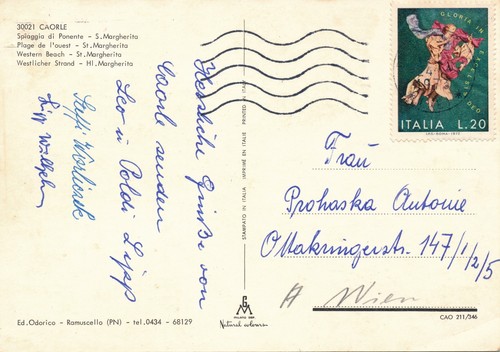 30021 CAORLE
Spiaggia di Ponente - S. Margherita
Plage de l'ouest - St. Margherita
Western Beach - St. Margherita
Westlicher Strand - Hl. Margherita
Herzliche Grüße von
Caorle senden
Leo u. Poldi Lipp
Steffi
Lipp Wilhelm
STAMPATO IN ITALIA IMPRIMÉ EN ITALIE PRINTED IN ITALY
GLORIA IN EXCELSIS DEO
ITALIA L.20
Frau
Prohaska Antonie
Ottakringerstr. 147/1/2/5
A Wien
Naturel colours
Ed. Odorico - Ramuscello (PN) - tel. 0434 - 68129
CAO 211/346